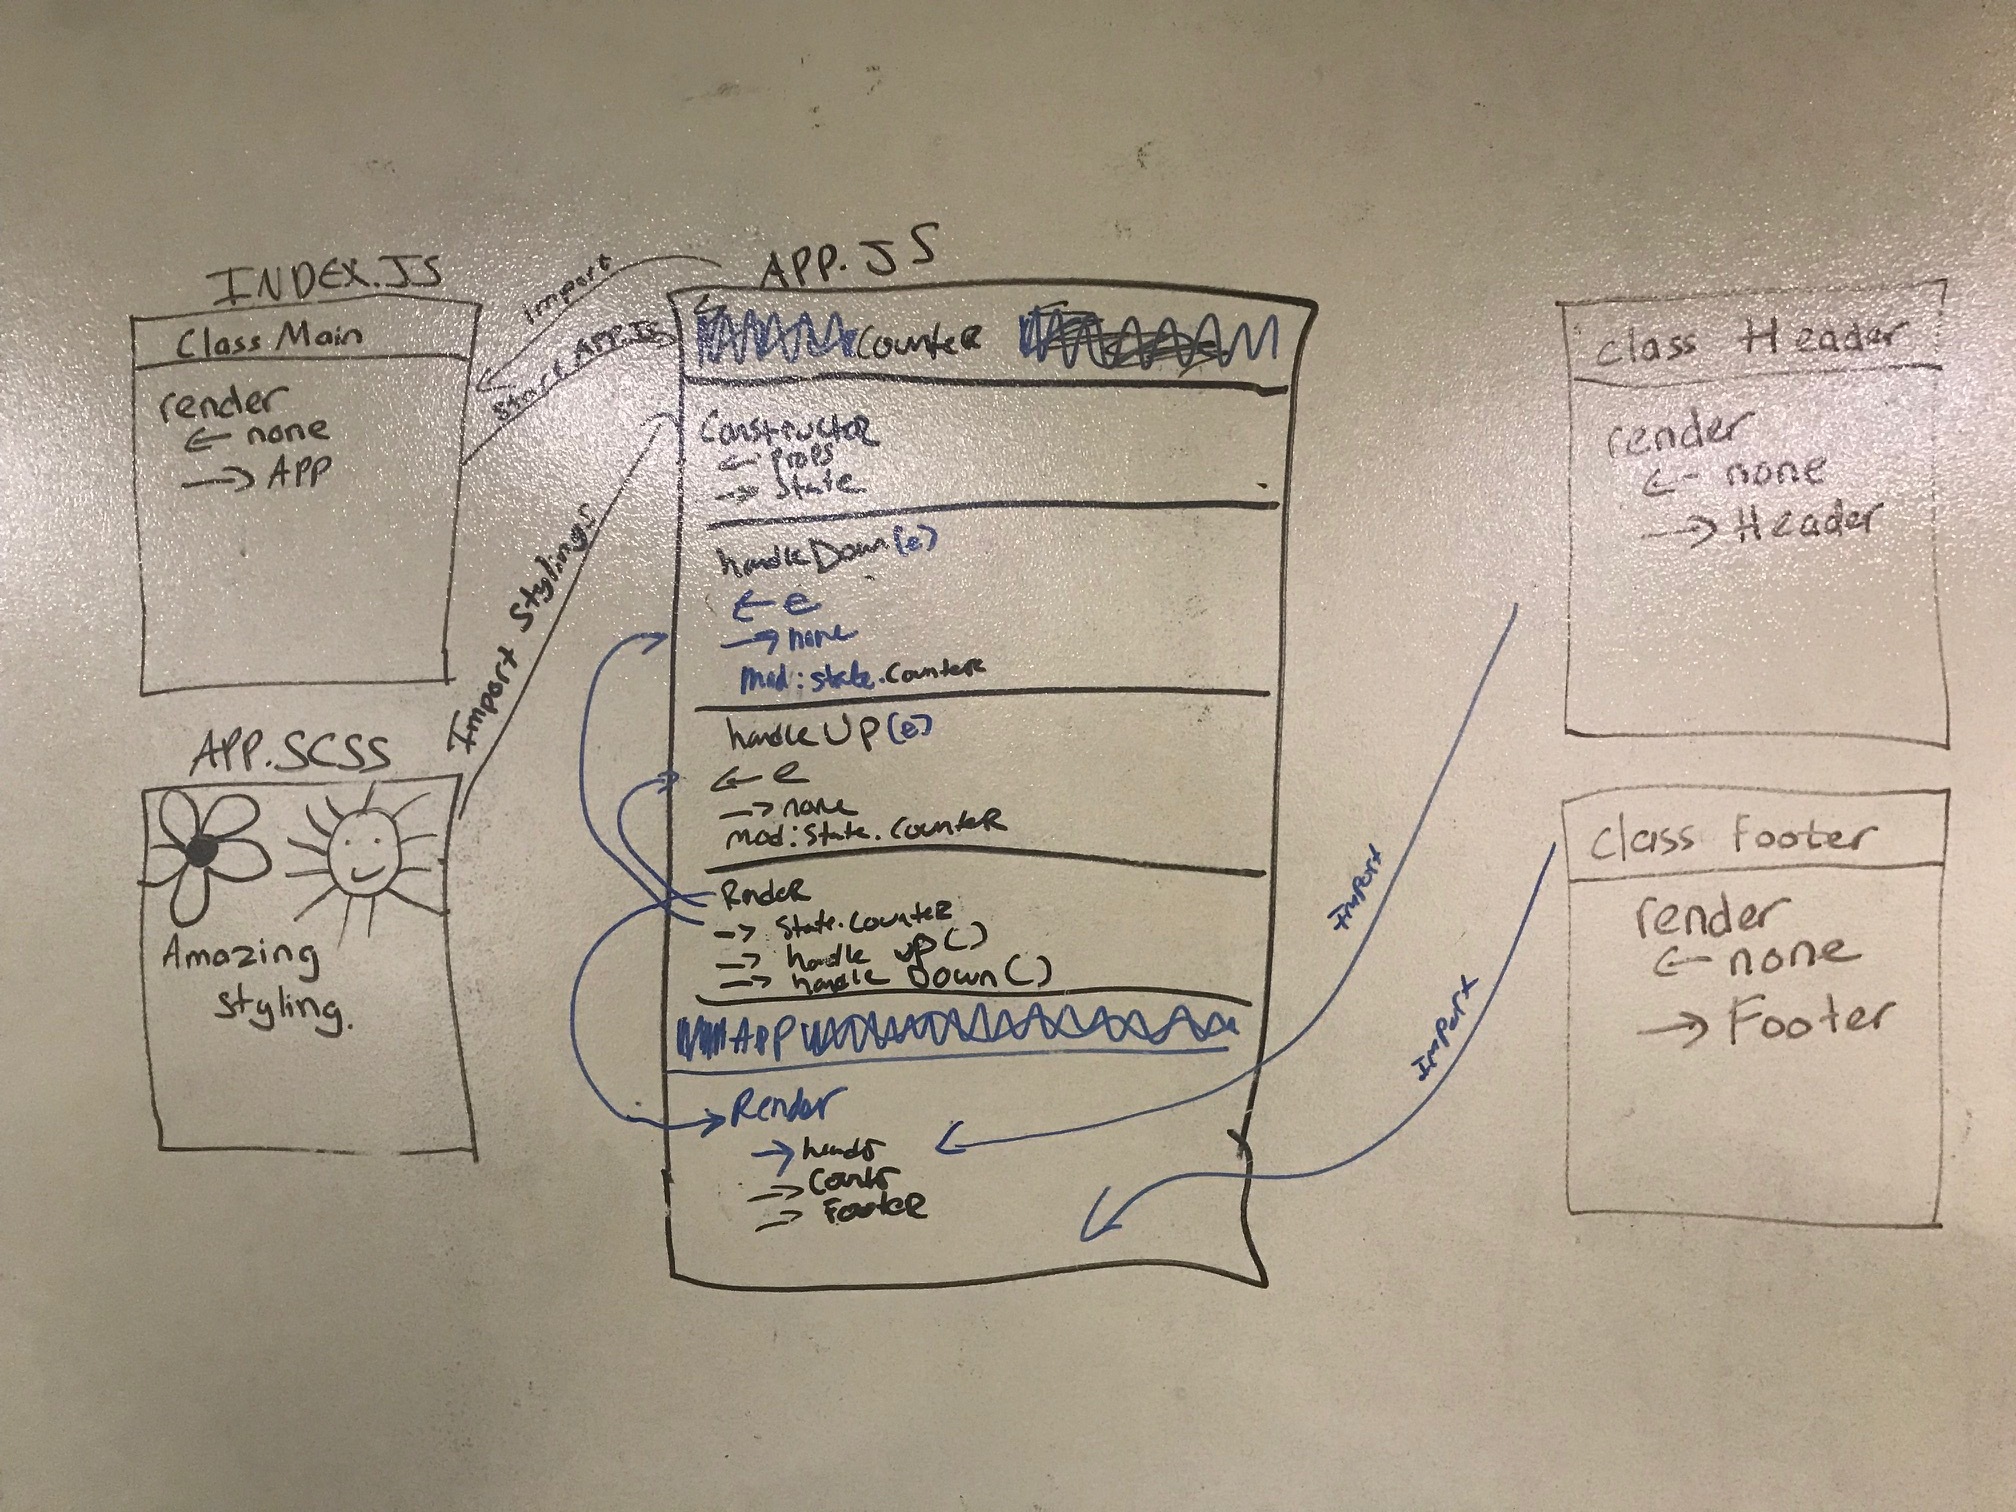 INDEX.JS
Class Main
render
← none
→ APP
Import
Start APP.JS
Import Stylings
APP.SCSS
Amazing
styling.
APP.JS
CounteR
ConstructoR
← props
→ State
handleDown(e)
← e
→ none
mod: state.CounteR
handleUp(e)
← e
→ none
mod: State.CounteR
RendeR
→ State.CounteR
→ handle up()
→ handle Down()
APP
Render
→ 
→ 
→ FooteR
Import
Import
class Header
render
← none
→ Header
class Footer
render
← none
→ Footer